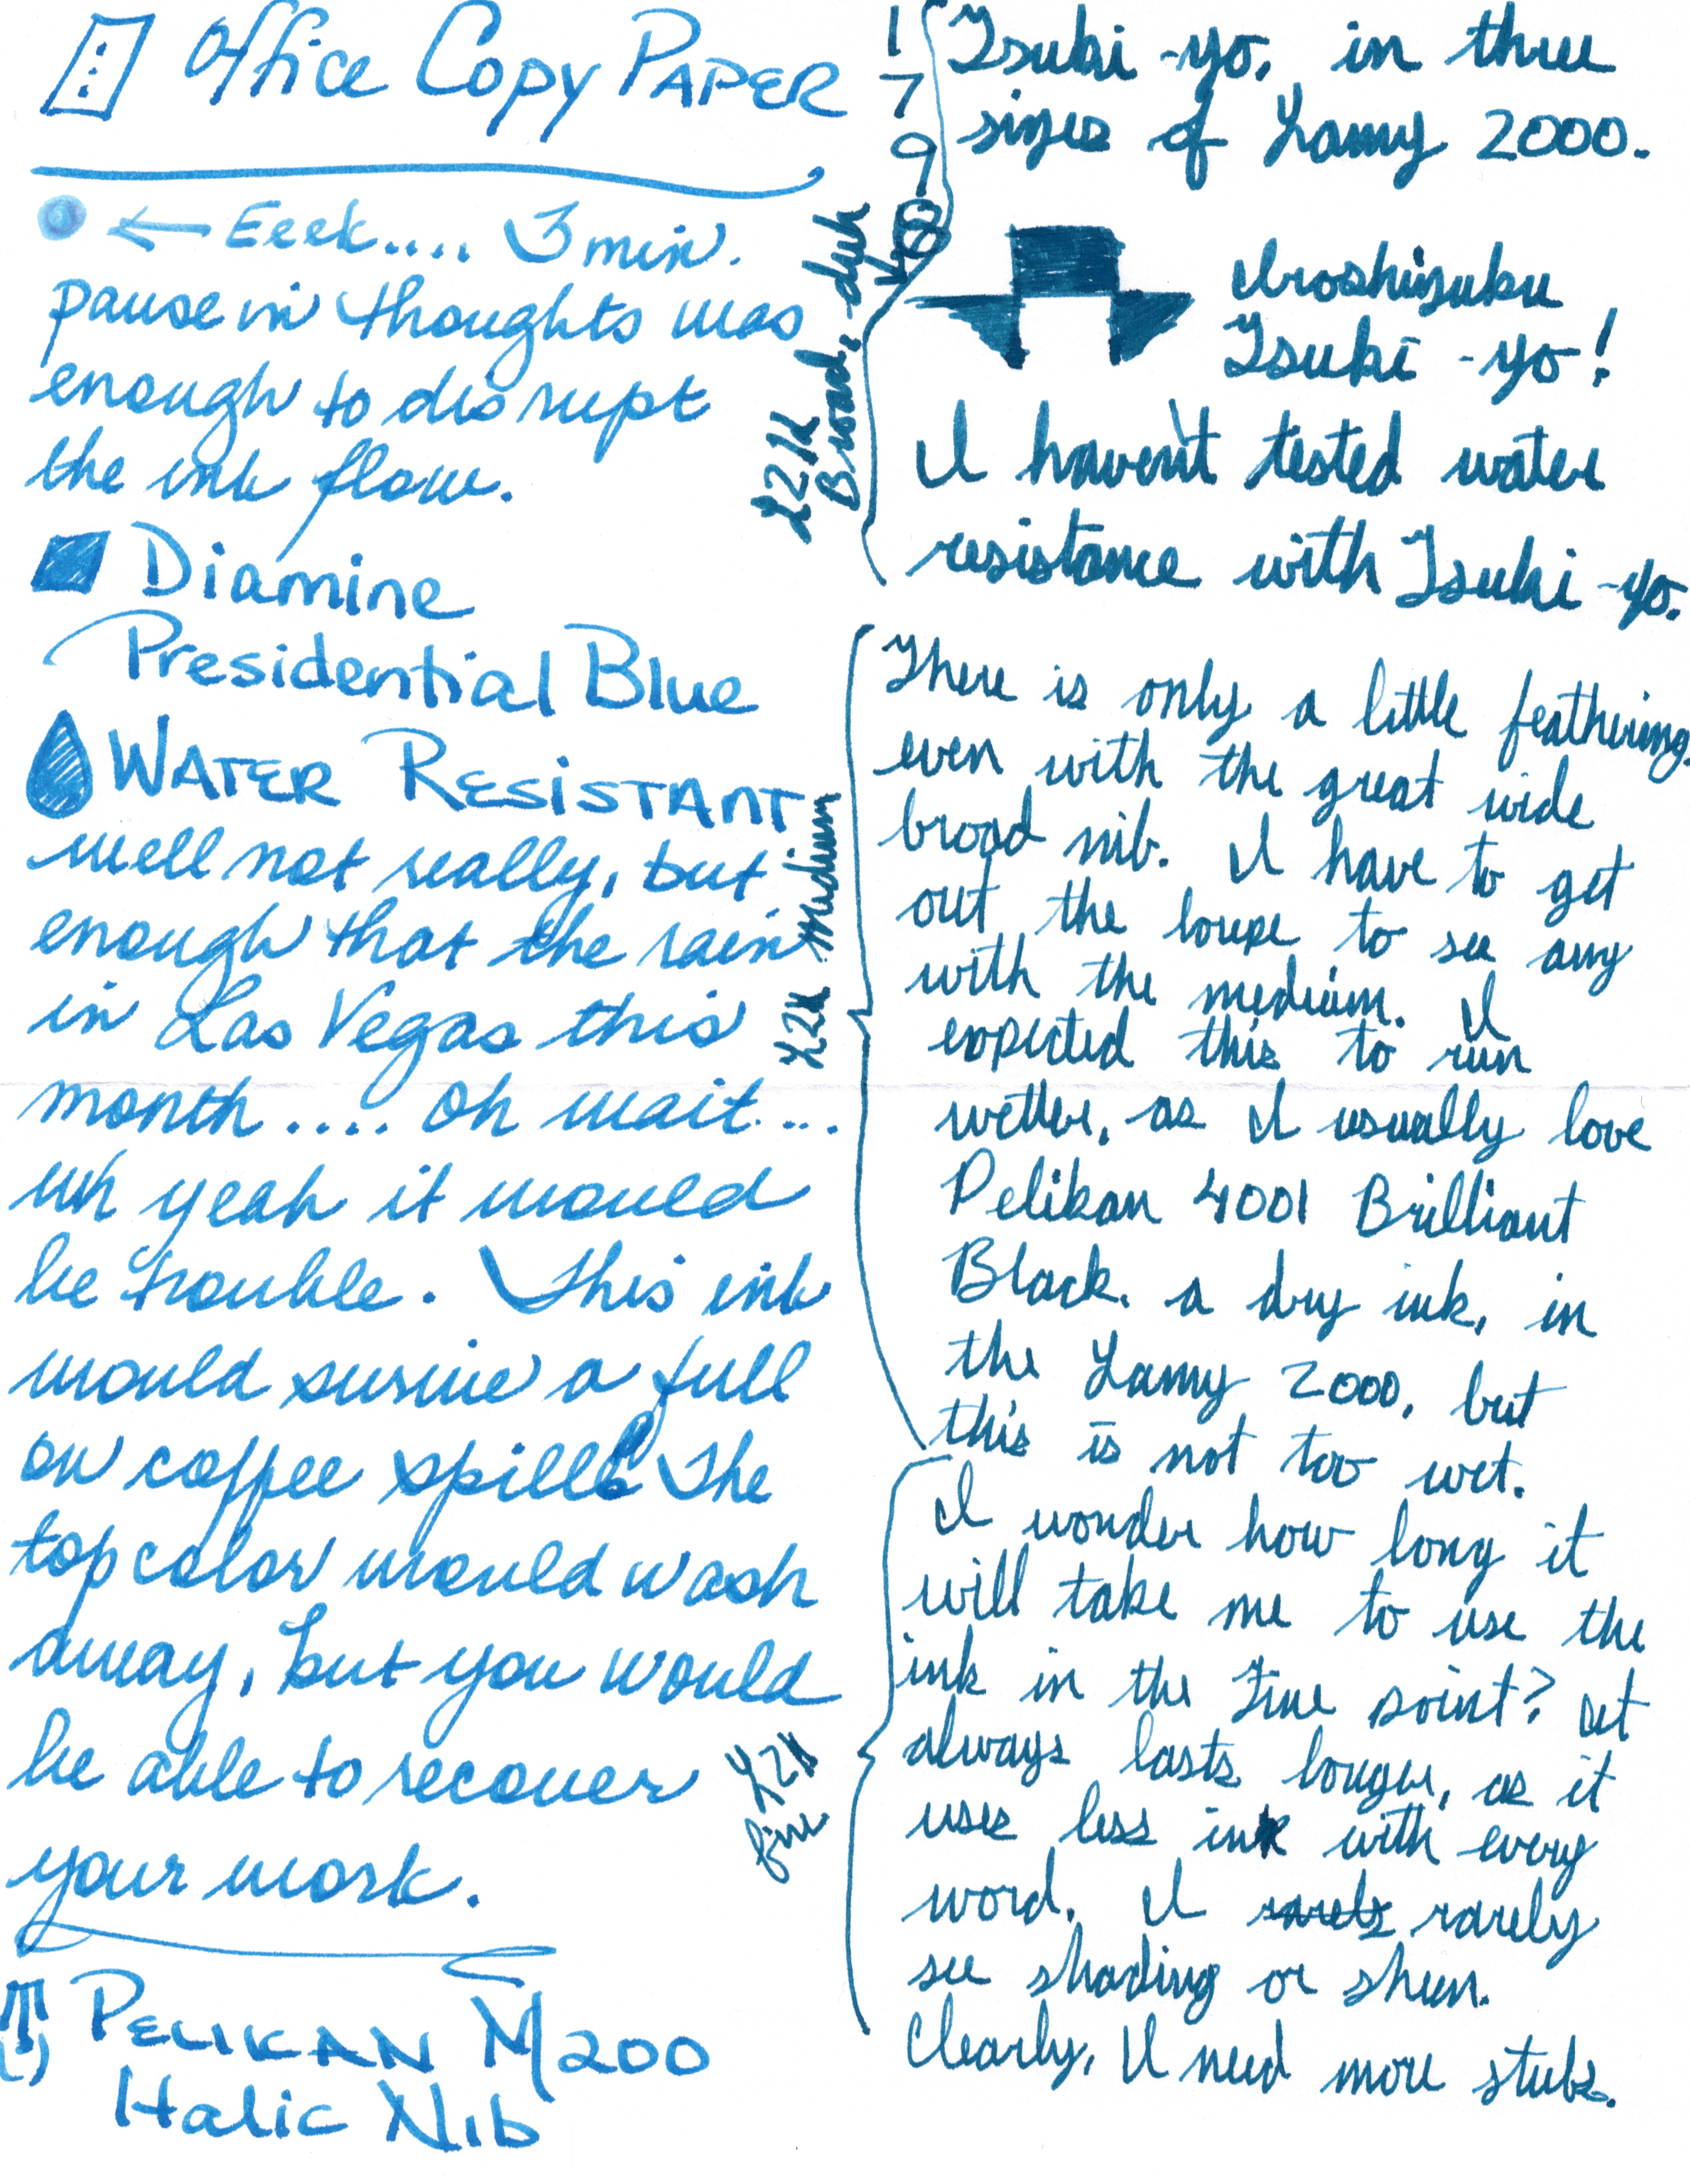 Office Copy Paper
← Eeek.... 3 min.
pause in thoughts was
enough to disrupt
the ink flow.
Diamine
Presidential Blue
WATER RESISTANT
well not really, but
enough that the rain
in Las Vegas this
month.... oh wait....
uh yeah it would
be trouble. This ink
would survive a full
on coffee spill. The
top color would wash
away, but you would
be able to recover
your work.
PELIKAN M200
Italic Nib
1
7
9
8
Tsuki-yo, in three
sizes of Lamy 2000.
Iroshizuku
Tsuki-yo!
I haven't tested water
resistance with Tsuki-yo.
L2K
Broad, duh
There is only a little feathering,
even with the great wide
broad nib. I have to get
out the loupe to see any
with the medium. I
expected this to run
wetter, as I usually love
Pelikan 4001 Brilliant
Black, a dry ink, in
the Lamy 2000, but
this is not too wet.
L2K Medium
I wonder how long it
will take me to use the
ink in the Fine point? It
always lasts longer, as it
uses less ink with every
word. I rarely
see shading or sheen.
Clearly, I need more stubs.
L2K
fine